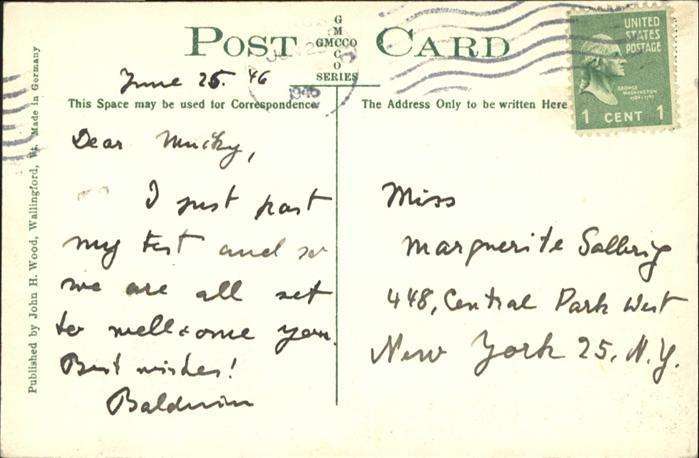 POST CARD
G
M
GMCCO
C
O
SERIES
UNITED
STATES
POSTAGE
GEORGE
WASHINGTON
1 CENT 1
1946
June 25. 46
This Space may be used for Correspondence
The Address Only to be written Here
Published by John H. Wood, Wallingford, Vt. Made in Germany
Dear Mucky,
I just past
my test and so
we are all set
to wellcome you.
Best wishes!
Baldwin
Miss
Marguerite
448, Central Park West
New York 25, N.Y.